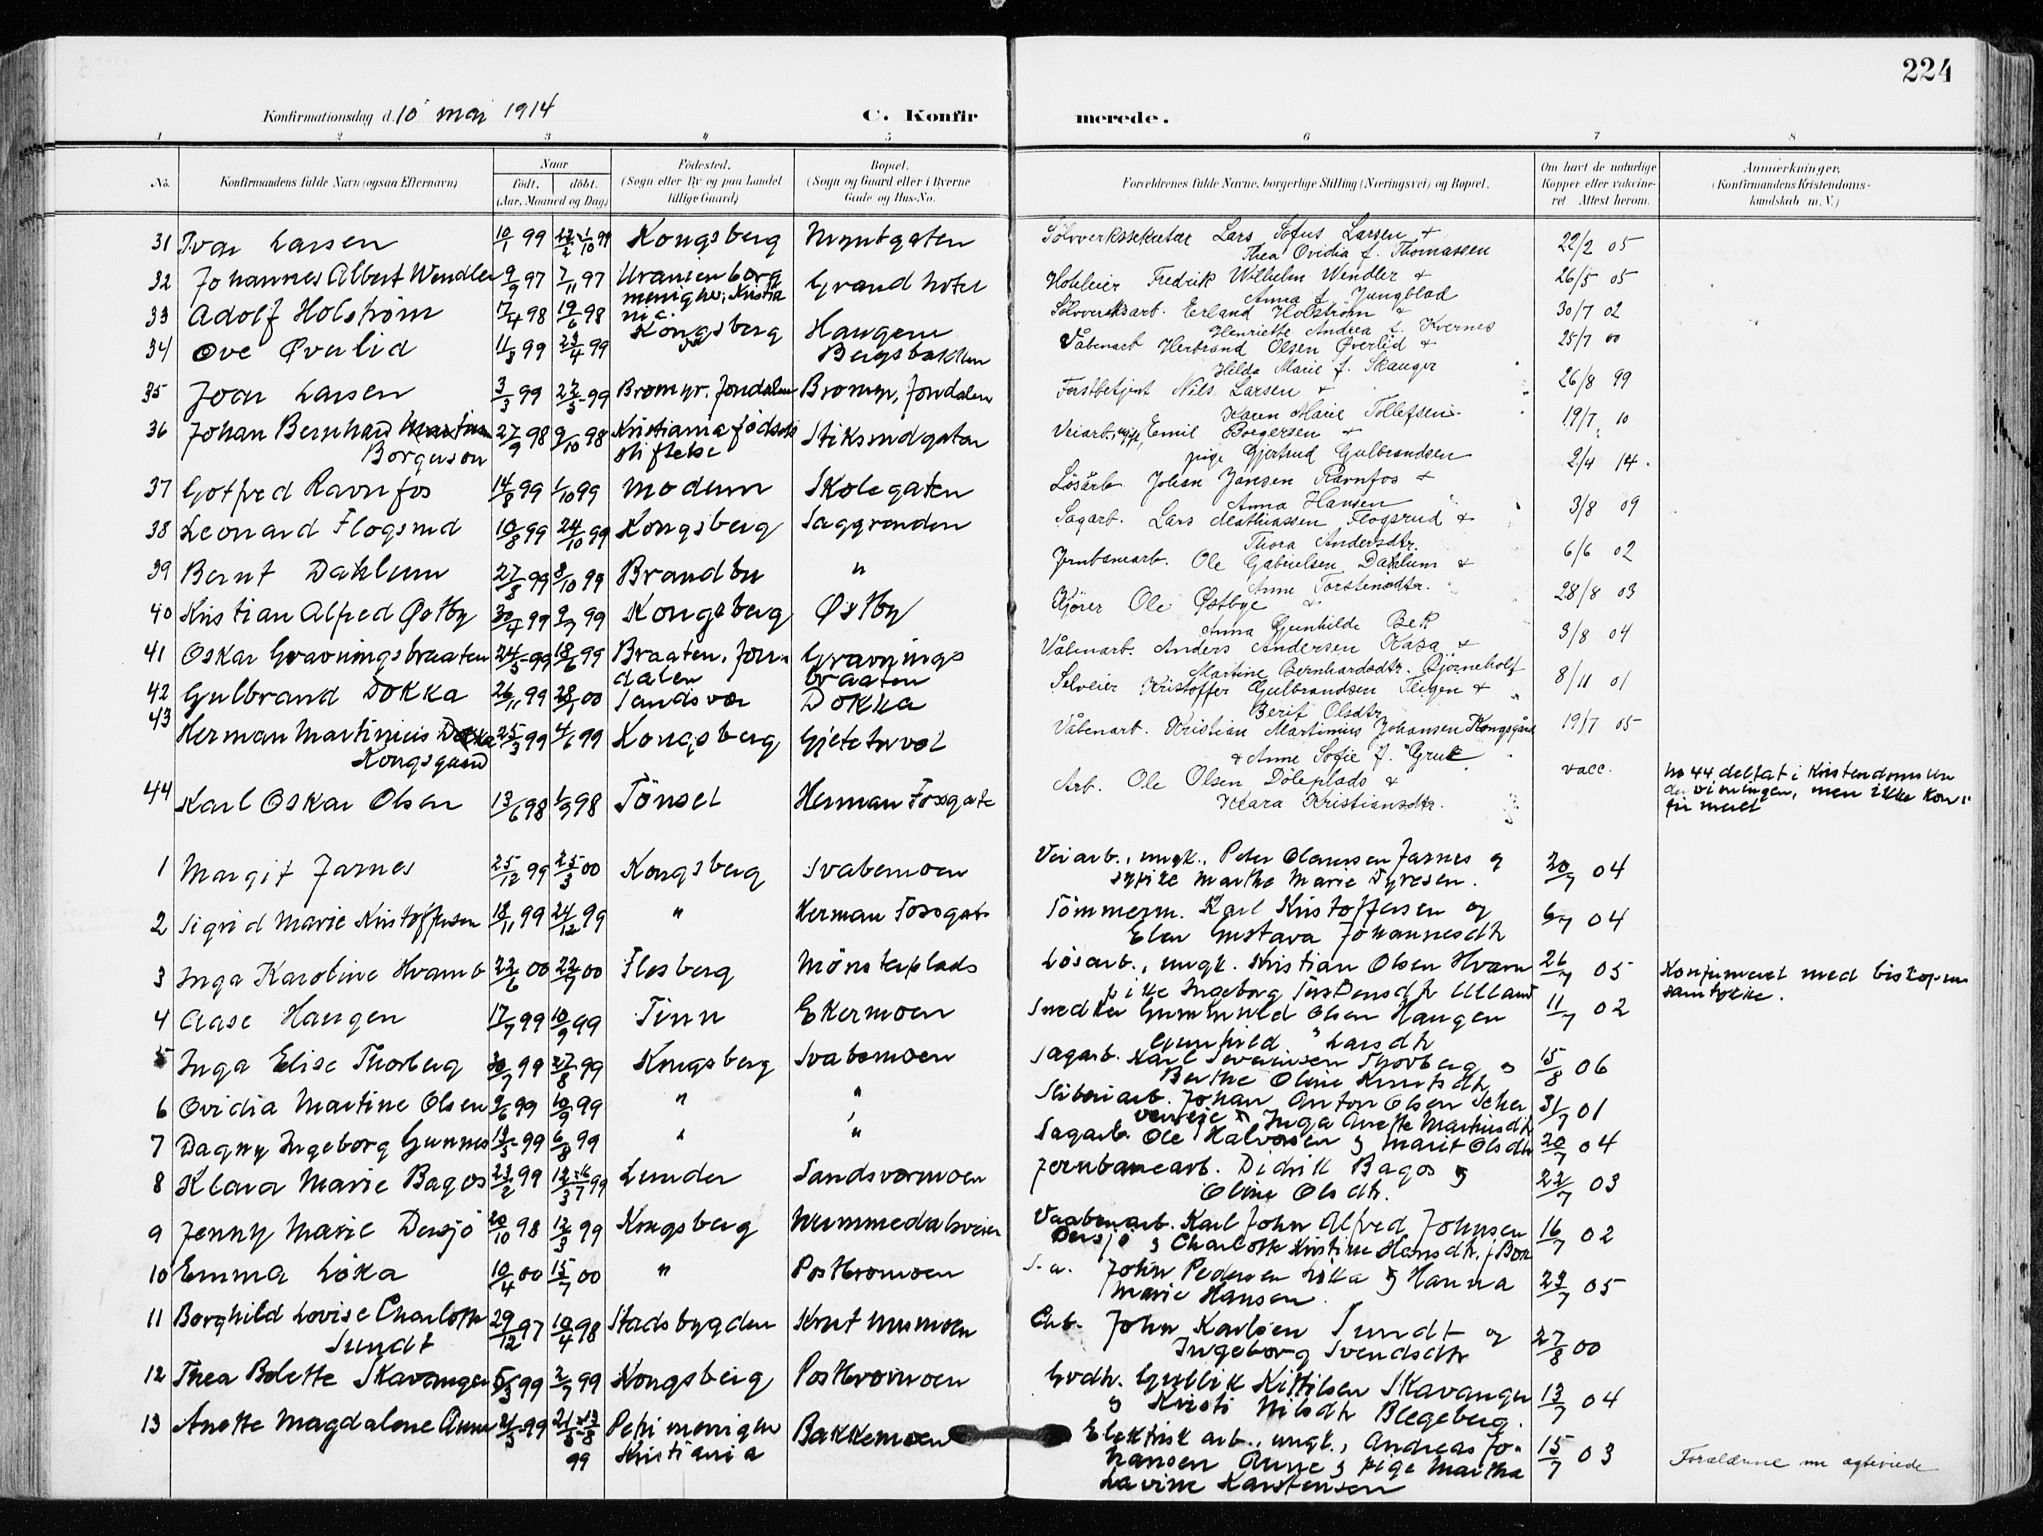 224
Konfirmationsdag d. 10 mai 1914
C. Konfirmerede.
1 2 3 4 5 6 7 8
No. Konfirmandens fulde Navn (ogsaa Efternavn) Naar født. døbt. (Aar, Maaned og Dag) Fødested. (Sogn eller By og paa Landet tillige Gaard) Bopæl. (Sogn og Gaard eller i Byerne Gade og Hus-No. Forældrenes fulde Navne, borgerlige Stilling (Næringsvei) og Bopæl. Om havt de naturlige Kopper eller vakcineret Attest herom. Anmærkninger. (Konfirmandens Kristendomskundskab m. V.)
31 Ivar Larsen 10/1 99 Kongsberg Myntgaten Sølvverkssekretær Lars Sofus Larsen + 22/2 05
Thea Ovidia f. Thomassen
32 Johannes Albert Wendler 9/9 97 7/11 97 Uranienborg Grand hotel Hoteleier Fredrik Wilhelm Wendler + 26/5 05
menighe; Kristia
nia. Anna f. Jungblad
33 Adolf Holstrøm 17/4 98 19/6 98 Kongsberg Haugene Sølvverksarb. Erland Holstrøm + 30/7 02
Henriette Andrea f. Kvernes
34 Ove Øverlid 11/3 99 23/4 99 Bergsbakken Våbenarb Herbrand Olsen Øverlid + 25/7 00
Hilda Marie f. Skauger
35 Joar Larsen 3/3 99 22/5 99 Bromyr, Jondalen Bromyr, Jondalen Forstbetjent Nils Larsen + 26/8 99
Karen Marie Tollefsen
36 Johan Bernhard 27/9 98 9/10 98 Kristiania fødsels Stiksrudgaten Veiarb., ugift, Emil Borgersen + 19/7 10
Borgerson stiftelse pige Gjertrud Gulbrandsen
37 Gotfred Ravnfos 14/8 99 1/10 99 Modum Skolegaten Løsarb Johan Jansen Ravnfos + 2/4 14.
Anna Hansen
38 Leonard Flogsrud 10/8 99 24/10 99 Kongsberg Saggrenden Sagarb. Lars Mathiassen Flogsrud + 3/8 09
Thora Andersdtr.
39 Bernt Daklum 27/8 99 8/10 99 Brandbu " Jernbanearb. Ole Gabrielsen Daklum + 6/6 02
Anne Torstensdtr.
40 Kristian Alfred Østby 30/4 99 9/7 99 Kongsberg Østby Kjører Ole Østbye + 28/8 03
Anna Gunhilde Bek
41 Oskar Gravningsbraaten 24/5 99 18/6 99 Braaten, Jon- Gravnings Våbenarb. Anders Andersen Kasa + 3/8 04
dalen braaten Martine Bernhardsdtr. Bjørneholf
42 Gulbrand Dokka 26/11 99 28/1 00 Sandsvær Dokka Selveier Kristoffer Gulbrandsen Teigen + 8/11 01
Berit Olsdtr
43 Herman Martinius 25/3 99 4/6 99 Kongsberg Gjetehvol Våbenarb. Kristian Martinius Johansen Kongsgård 19/7 05
Kongsgaard + Anne Sofie f. Grue
44 Karl Oskar Olsen 13/6 98 1/9 98 Tönset Herman Fossgate Arb. Ole Olsen Döleplads + vacc. No 44 deltat i Kristendomsun
Klara Kristiansdtr. dervisningen, men ikke kon-
firmert
1 Margit Jarnes 25/12 99 25/3 00 Kongsberg Svabemoen Veiarb., ungk., Peter Olaussen Jarnes og 20/7 04
spike Marthe Marie Dyresen.
2 Sigrid Marie Kristoffersen 18/11 99 24/12 99 " Herman Fossgat. Tömmerm. Karl Kristoffersen og 6/7 04
Elen Gustava Johannesdtr
3 Inga Karoline Hvamb 22/6 00 22/7 00 Flesberg Mønsterplads Løsarb., ungk. Kristian Olsen Hvam 26/7 05 Konfirmeret med biskopens
pike Ingeborg Torstensdtr Ulland samtykke.
4 Aase Haugen 17/7 99 10/9 99 Tinn Ekermoen Snedker Gunnulf Olsen Haugen 11/7 02
Gunhild Larsdtr
5 Inga Elise Thorberg 30/7 99 27/8 99 Kongsberg Svabemoen Sagarb. Karl Severinsen Thorberg og 15/8 06
Berthe Oline Knutsdtr
6 Ovidia Martine Olsen 9/6 99 10/9 99 " " Sliberiarb. Johan Anton Olsen 31/7 01
Inga Anette Martinsdtr
7 Dagny Ingeborg Gunnes 99 6/8 99 " " Sagarb. Ole Halvorsen og Marit Olsdtr 20/7 04
8 Klara Marie Bagos 23/2 99 Lunder Sandsværmoen Jernbanearb. Didrik Bagos og 22/7 03
Oline Olsdtr.
9 Jenny Marie Dersjø 20/10 98 12/3 99 Kongsberg Nummedalsveien Vaabenarb. Karl John Alfred Johnsen 16/7 02
Dersjø og Charlotte Kristine Hansdtr. f Bon
10 Emma Løka 10/4 00 15/7 00 " Postbromoen S. a. John Pedersen Løka og Hanna 23/7 05
Marie Hansen.
11 Borghild Lovise Charlotte 29/12 97 10/4 98 Stadsbygden Knutsmoen Erb. John Karlsen Sundt og 27/8 00
Sundt Ingeborg Svendsdtr
12 Thea Bolette Skavanger 5/3 99 2/7 99 Kongsberg Postbromoen Gvdbr. Gullik Kittilsen Skavanger 13/7 04
og Kristi Nilsdtr Blegeberg.
13 Anette Magdalene Anne 21/3 99 Petri menighe Bakkemoen Elektrisk arb., ungk., Andreas Jo- 15/7 03 Forældrene nu egteviede
99 Kristiania hansen Anne og pige Martha
Lavine Karstensen